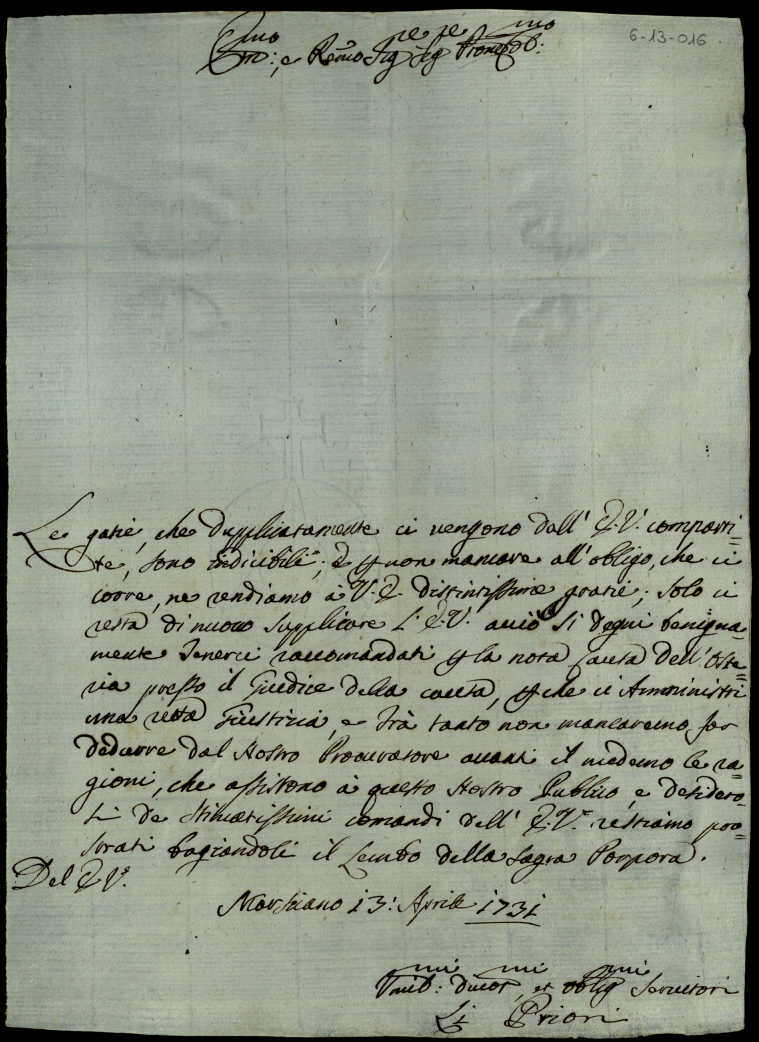 6-13-016
Em̃o: e Rẽmo Sig.re Sig.re Pron Col:mo
Le gatie, che dupplicatamente ci vengono dall' E.V. comparti=
te, sono indicibili; E p non mancare all'obligo, che ci
corre, ne rendiamo à V.E. distintissime gratie; solo ci
resta di nuovo supplicare l'E.V. acciò si degni benigna=
mente tenerci raccomandati p la nota causa dell'Oste=
ria presso il Giudice della causa, p che ci Amministri
una retta Giustizia, e trà tanto non mancaremo far
dedurre dal Nostro Procuratore avanti il medemo le ra=
gioni, che assistono à questo Nostro Publico, e desidero=
si de stimatissimi comandi dell' E.V. restiamo pro=
strati bagiandoli il Lembo della Sagra Porpora.
Del E.V.
Marsciano 13: Aprile 1731
Umil:mi Devot:mi, et oblig:mi Servitori
Li Priori